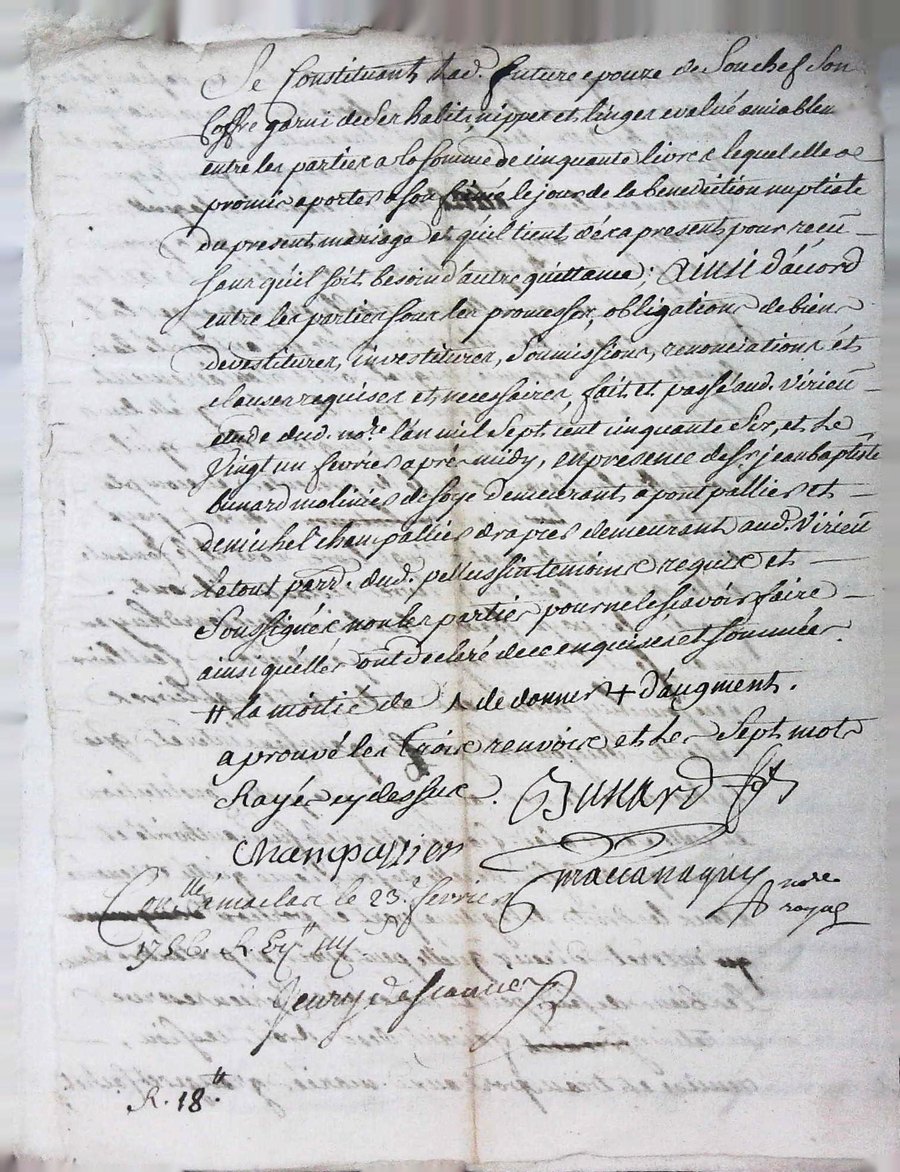 Se Constituant lad. future epouze de Son chef Son
Coffre garni de ses habits, nippes et linges evalué amiablem
entre les parties a la somme de cinquante livres lequel elle a
promis aporter a son le jour de la benediction nuptiale
du present mariage et qu'il tient déz a present pour reçeu
sans qu'il soit besoin d'autre quittance; ainsi d'acord
entre les parties sous les promesses, obligations de biens
devestitures, investitures, soumissions, renonciations et
clauses requises et necessaires, fait et passé aud. Virieu
etude dud. nore. l'an mil Sept cent cinquante Six, et Le
Vingt un fevrier apres midy, en presence de Sr. jean baptiste
bunard molinier de soye demeurant à pont pallier et
de michel champallier drapier demeurant aud. Virieu
le tout parr. dud. pellussin temoins requis et
Soussignés non les parties pour ne le sçavoir faire
ainsi qu'elles ont declaré de ce enquises et sommées.
# la moitié de ^ de donner + D'augment.
aprouvé les trois renvoirs et les Sept mots
Rayés cy dessus. Bunard
Champallier
nore
royal
Conllé a maclas le 23e fevrier
1756. R.
R. 18 ₶.